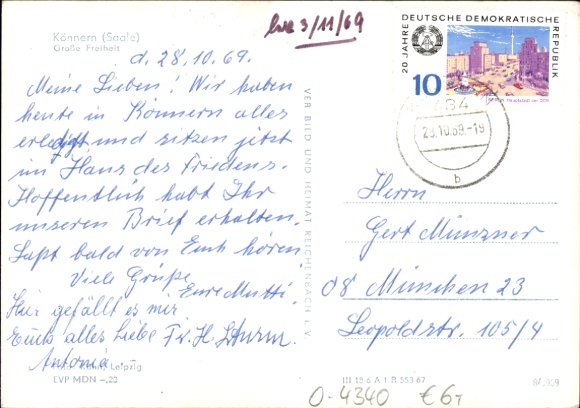 Könnern (Saale)
Große Freiheit
bre 3/11/69
d. 28.10.69.
Meine Lieben! Wir haben
heute in Könnern alles
erledigt und sitzen jetzt
im Haus des Friedens.
Hoffentlich habt Ihr
unseren Brief erhalten.
Laßt bald von Euch hören
Viele Grüße
Eure Mutti.
Hier gefällt es mir
Euch alles Liebe Fr. H. Sturm
Antonie
Leipzig
EVP MDN –,20
VEB BILD UND HEIMAT REICHENBACH i. V.
20 JAHRE DEUTSCHE DEMOKRATISCHE REPUBLIK
10
Hauptstadt der DDR
434
28.10.69.-19
b
Herrn
Gert Münzner
08 München 23
Leopoldstr. 105/4
III 18 6 A 1 B 553 67
O-4340 €6,-